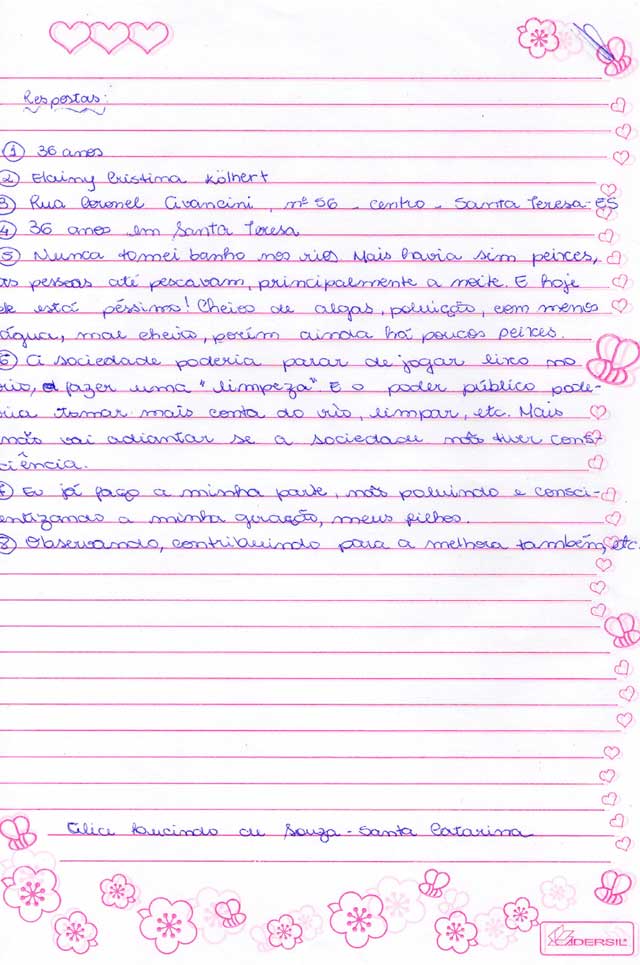 Respostas:
① 36 anos
② Elainy Cristina Kölhert
3 Rua Coronel Avancini, nº 56 - centro - Santa Teresa-ES
4 36 anos em Santa Teresa
⑤ Nunca tomei banho nos rios. Mais havia sim peixes,
as pessoas até pescavam, principalmente a noite. E hoje
ele está péssimo! Cheios de algas, poluição, com menos
água, mal cheiro, porém ainda há poucos peixes.
⑥ A sociedade poderia parar de jogar lixo no
rio, fazer uma "limpeza" E o poder público pode-
ria tomar mais conta do rio, limpar, etc. Mais
não vai adiantar se a sociedade não tiver cons-
ciência.
7 Eu já faço a minha parte, não poluindo e consci-
entizando a minha geração, meus filhos.
8 Observando, contribuindo para a melhora também, etc.
Alice de Souza - Santa Catarina
CADERSIL